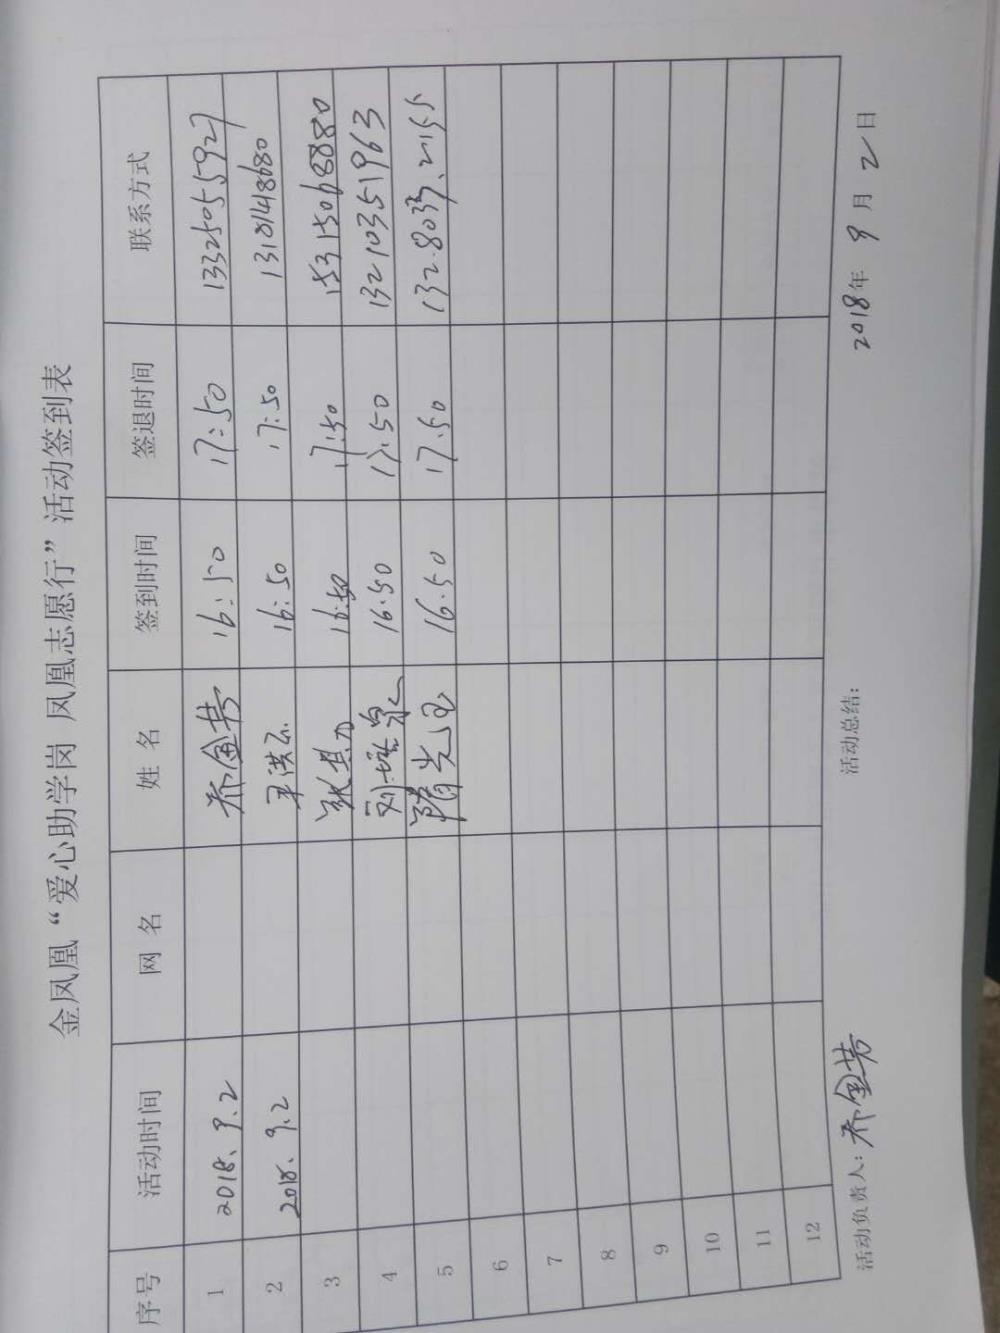 金凤凰“爱心助学岗 凤凰志愿行”活动签到表
序号 活动时间 网 名 姓 名 签到时间 签退时间 联系方式
1 2018.9.2 乔金芳 16:50 17:50 13325055927
2 2018.9.2 洪 16:50 17:50 13181418680
3 张 16:50 17:50 15315068880
4 刘培泉 16.50 17.50 13210351963
5 隋光玉 16.50 17.50
6
7
8
9
10
11
12
活动负责人：乔金芳 活动总结： 2018年 9 月 2 日